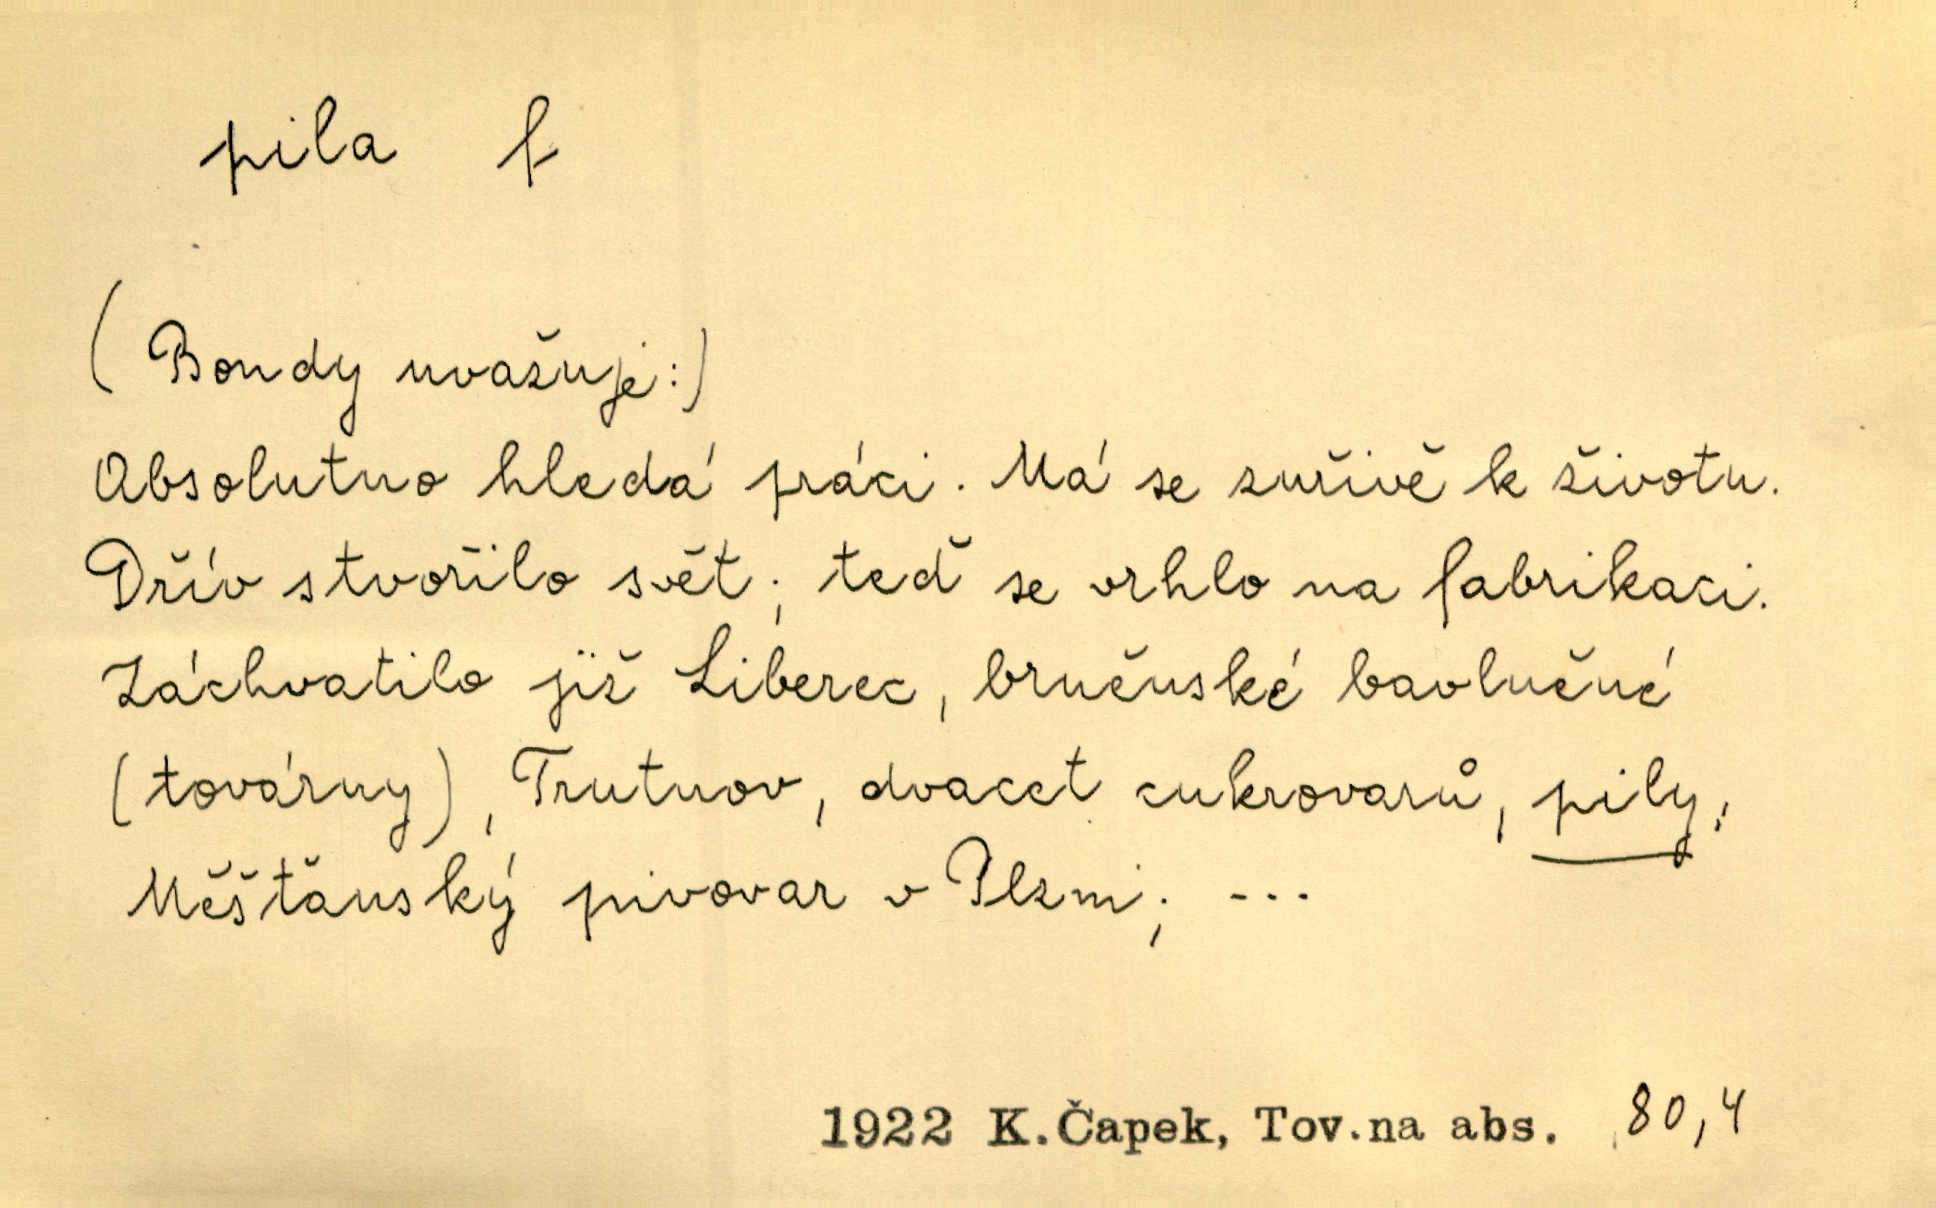 pila f
(Bondy uvažuje:)
Absolutno hledá práci. Má se zuřivě k životu.
Dřív stvořilo svět; teď se vrhlo na fabrikaci.
Záchvatilo již Liberec, bručenské bavlněné
(továrny), Trutnov, dvacet cukrovarů, pily,
Měšťanský pivovar v Plzni; ---
1922 K.Čapek, Tov.na abs. 80,4